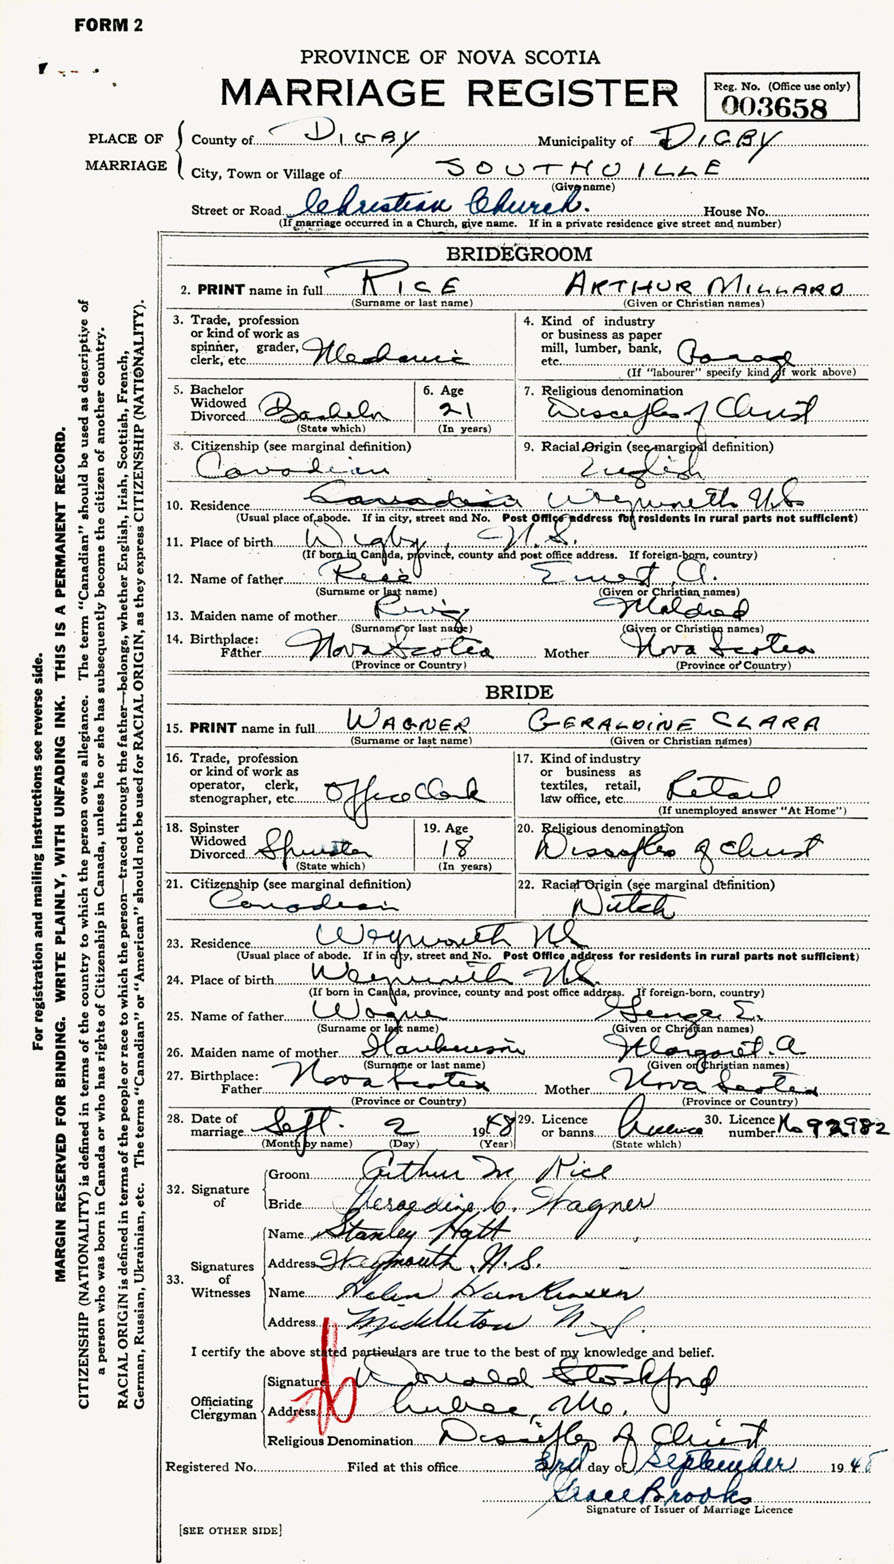 FORM 2
PROVINCE OF NOVA SCOTIA
MARRIAGE REGISTER
Reg. No. (Office use only)
003658
PLACE OF MARRIAGE
County of DIGBY Municipality of DIGBY
City, Town or Village of SOUTHVILLE
(Give name)
Street or Road Christian Church. House No.
(If marriage occurred in a Church, give name. If in a private residence give street and number)
BRIDEGROOM
2. PRINT name in full RICE ARTHUR MILLARD
(Surname or last name) (Given or Christian names)
3. Trade, profession or kind of work as spinner, grader, clerk, etc. Mechanic
4. Kind of industry or business as paper mill, lumber, bank, etc. Garage
(If "labourer" specify kind of work above)
5. Bachelor Widowed Divorced Bachelor
(State which)
6. Age 21
(In years)
7. Religious denomination
Disciples of Christ
8. Citizenship (see marginal definition)
Canadian
9. Racial Origin (see marginal definition)
English
10. Residence Weymouth N.S.
(Usual place of abode. If in city, street and No. Post Office address for residents in rural parts not sufficient)
11. Place of birth N.S.
(If born in Canada, province, county and post office address. If foreign-born, country)
12. Name of father Rice Ernest A.
(Surname or last name) (Given or Christian names)
13. Maiden name of mother Mildred
(Surname or last name) (Given or Christian names)
14. Birthplace: Father Nova Scotia Mother Nova Scotia
(Province or Country) (Province or Country)
BRIDE
15. PRINT name in full WAGNER GERALDINE CLARA
(Surname or last name) (Given or Christian names)
16. Trade, profession or kind of work as operator, clerk, stenographer, etc. Office Clerk
17. Kind of industry or business as textiles, retail, law office, etc. Retail
(If unemployed answer "At Home")
18. Spinster Widowed Divorced Spinster
(State which)
19. Age 18
(In years)
20. Religious denomination
Disciples of Christ
21. Citizenship (see marginal definition)
Canadian
22. Racial Origin (see marginal definition)
Dutch
23. Residence Weymouth NS
(Usual place of abode. If in city, street and No. Post Office address for residents in rural parts not sufficient)
24. Place of birth Weymouth NS.
(If born in Canada, province, county and post office address. If foreign-born, country)
25. Name of father Wagner George E.
(Surname or last name) (Given or Christian names)
26. Maiden name of mother Hankinson Margaret A.
(Surname or last name) (Given or Christian names)
27. Birthplace: Father Nova Scotia Mother Nova Scotia
(Province or Country) (Province or Country)
28. Date of marriage Sept. 2 1948
(Month by name) (Day) (Year)
29. Licence or banns Licence
(State which)
30. Licence number No 92982
32. Signature of
Groom Arthur M Rice
Bride Geraldine C. Wagner
33. Signatures of Witnesses
Name Stanley Hatt
Address Weymouth, N.S.
Name Helen Hankinson
Address Middleton N.S.
I certify the above stated particulars are true to the best of my knowledge and belief.
Officiating Clergyman
Signature Donald Stockford
Address Lubec, Me.
Religious Denomination Disciples of Christ
Registered No. Filed at this office 3rd day of September 1948
Grace Brooks
Signature of Issuer of Marriage Licence
[SEE OTHER SIDE]
For registration and mailing instructions see reverse side.
MARGIN RESERVED FOR BINDING. WRITE PLAINLY, WITH UNFADING INK. THIS IS A PERMANENT RECORD.
CITIZENSHIP (NATIONALITY) is defined in terms of the country to which the person owes allegiance. The term "Canadian" should be used as descriptive of
a person who was born in Canada or who has rights of Citizenship in Canada, unless he or she has subsequently become the citizen of another country.
RACIAL ORIGIN is defined in terms of the people or race to which the person—traced through the father—belongs, whether English, Irish, Scottish, French,
German, Russian, Ukrainian, etc. The terms "Canadian" or "American" should not be used for RACIAL ORIGIN, as they express CITIZENSHIP (NATIONALITY).